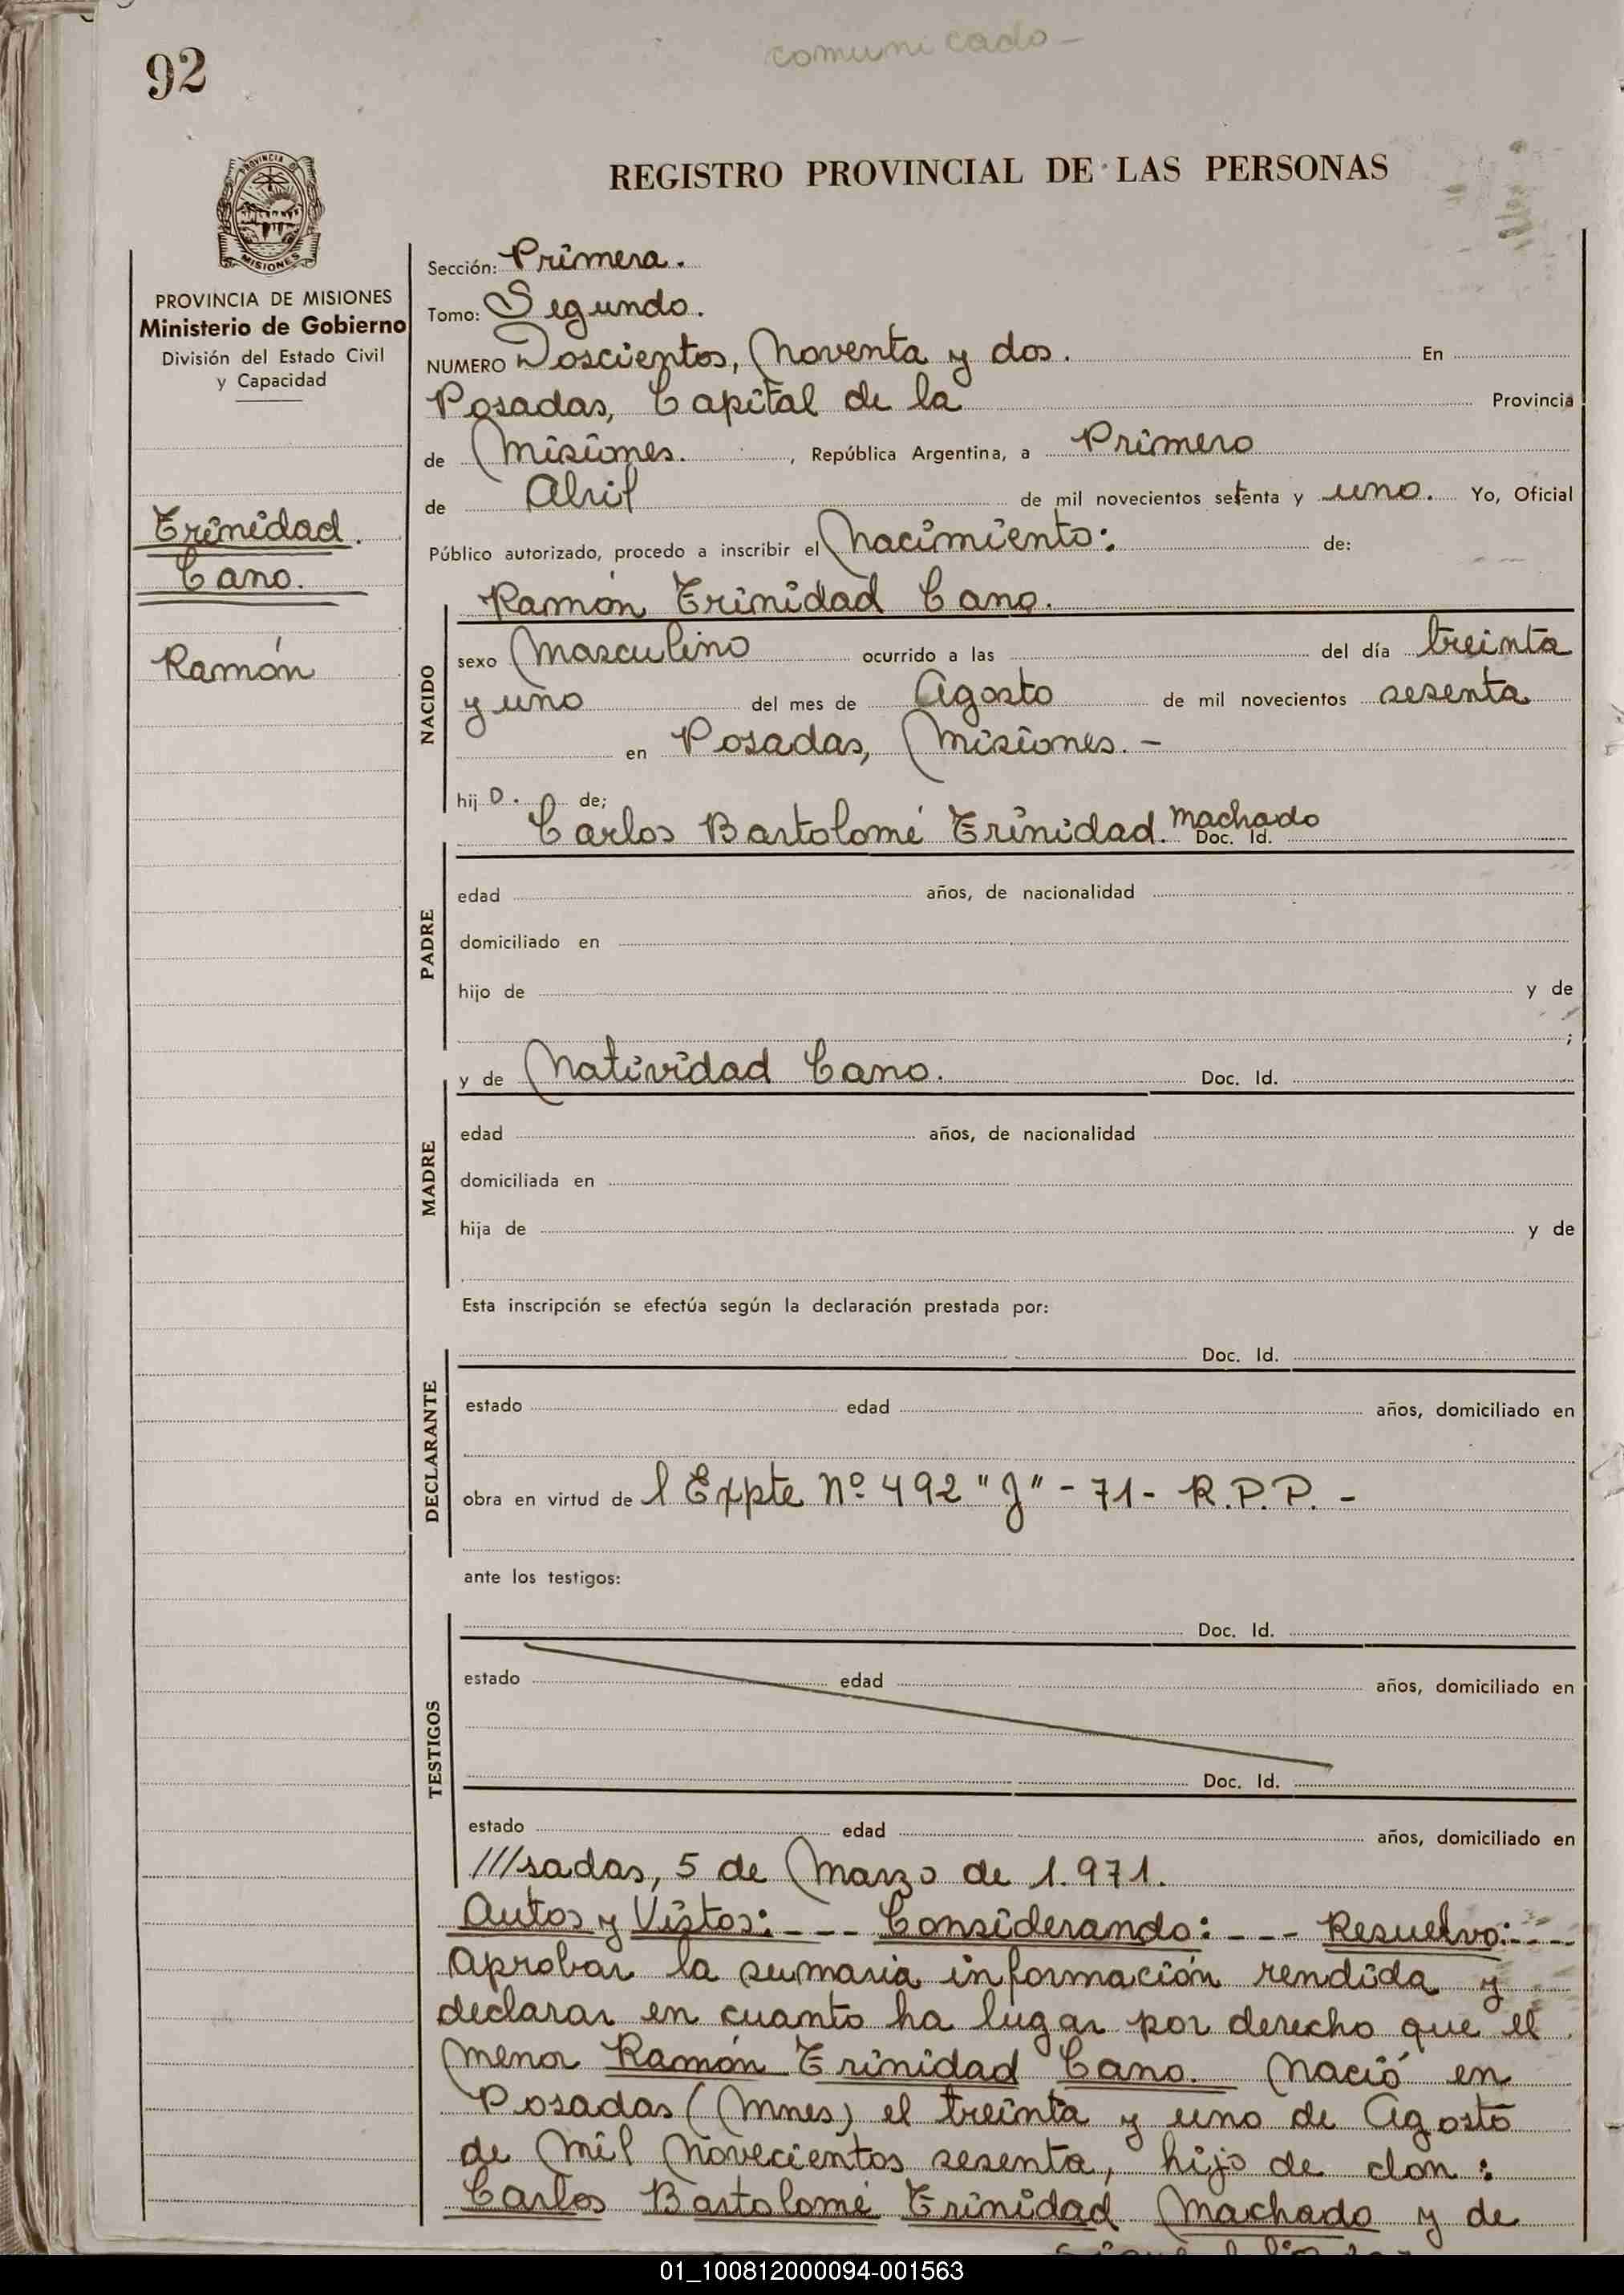 comunicado -
92
REGISTRO PROVINCIAL DE LAS PERSONAS
PROVINCIA DE MISIONES
MISIONES
PROVINCIA DE MISIONES
Ministerio de Gobierno
División del Estado Civil
y Capacidad
Trinidad.
Cano.
Ramón
Sección: Primera.
Tomo: Segundo.
NUMERO Doscientos, Noventa y dos. En
Posadas, Capital de la Provincia
de Misiones. , República Argentina, a Primero
de Abril de mil novecientos setenta y uno. Yo, Oficial
Público autorizado, procedo a inscribir el Nacimiento: de:
Ramón Trinidad Cano.
NACIDO
sexo Masculino ocurrido a las del día treinta
y uno del mes de Agosto de mil novecientos sesenta
en Posadas, Misiones. -
hij o. de;
Carlos Bartolomé Trinidad. Machado Doc. Id.
PADRE
edad años, de nacionalidad
domiciliado en
hijo de y de
;
y de Natividad Cano. Doc. Id.
MADRE
edad años, de nacionalidad
domiciliada en
hija de y de
Esta inscripción se efectúa según la declaración prestada por:
Doc. Id.
DECLARANTE
estado edad años, domiciliado en
obra en virtud de l Expte Nº 492 "J" - 71 - R.P.P. -
ante los testigos:
Doc. Id.
TESTIGOS
estado edad años, domiciliado en
Doc. Id.
estado edad años, domiciliado en
///sadas, 5 de Marzo de 1.971.
Autos y Vistos: - - - Considerando: - - - Resuelvo: - - - -
Aprobar la sumaria información rendida y
declarar en cuanto ha lugar por derecho que el
menor Ramón Trinidad Cano. Nació en
Posadas (Mnes) el treinta y uno de Agosto
de Mil Novecientos sesenta, hijo de don:
Carlos Bartolomé Trinidad Machado y de
01_100812000094-001563